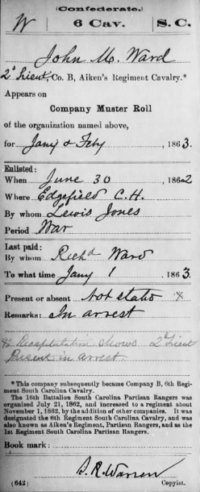 Confederate.
W
6 Cav.
S.C.
John M. Ward
2' Lieut, Co. B, Aiken's Regiment Cavalry.*
Appears on
Company Muster Roll
of the organization named above,
for Jany & Feby, 1863.
Enlisted:
When June 30, 1862
Where Edgefield C.H.
By whom Lewis Jones
Period War
Last paid:
By whom Richd Ward
To what time Jany 1, 1863.
Present or absent Not stated *
Remarks: In arrest
* Recapitulation shows 2' Lieut
Present in arrest
*This company subsequently became Company B, 6th Regiment South Carolina Cavalry.
The 16th Battalion South Carolina Partisan Rangers was
organized July 21, 1862, and increased to a regiment about
November 1, 1862, by the addition of other companies. It was
designated the 6th Regiment South Carolina Cavalry, and was
also known as Aiken's Regiment, Partisan Rangers, and as the
1st Regiment South Carolina Partisan Rangers.
Book mark:
S. R. Warren
(642)
Copyist.